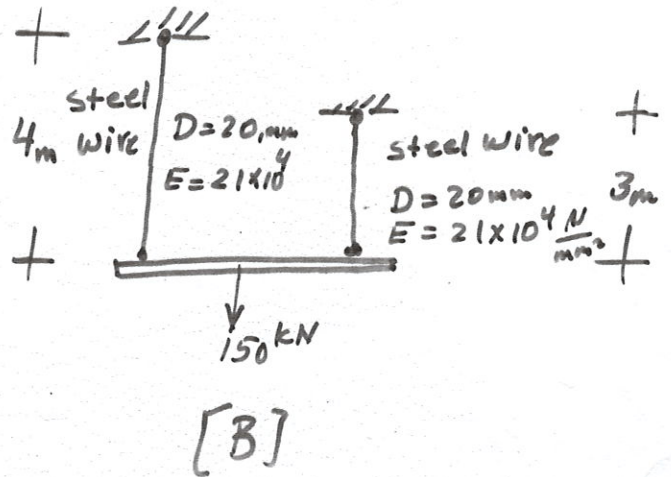 steel
4m wire
D=20mm
E=21×10⁴
steel wire
D=20mm
E=21×10⁴ N/mm²
3m
150 kN
[B]